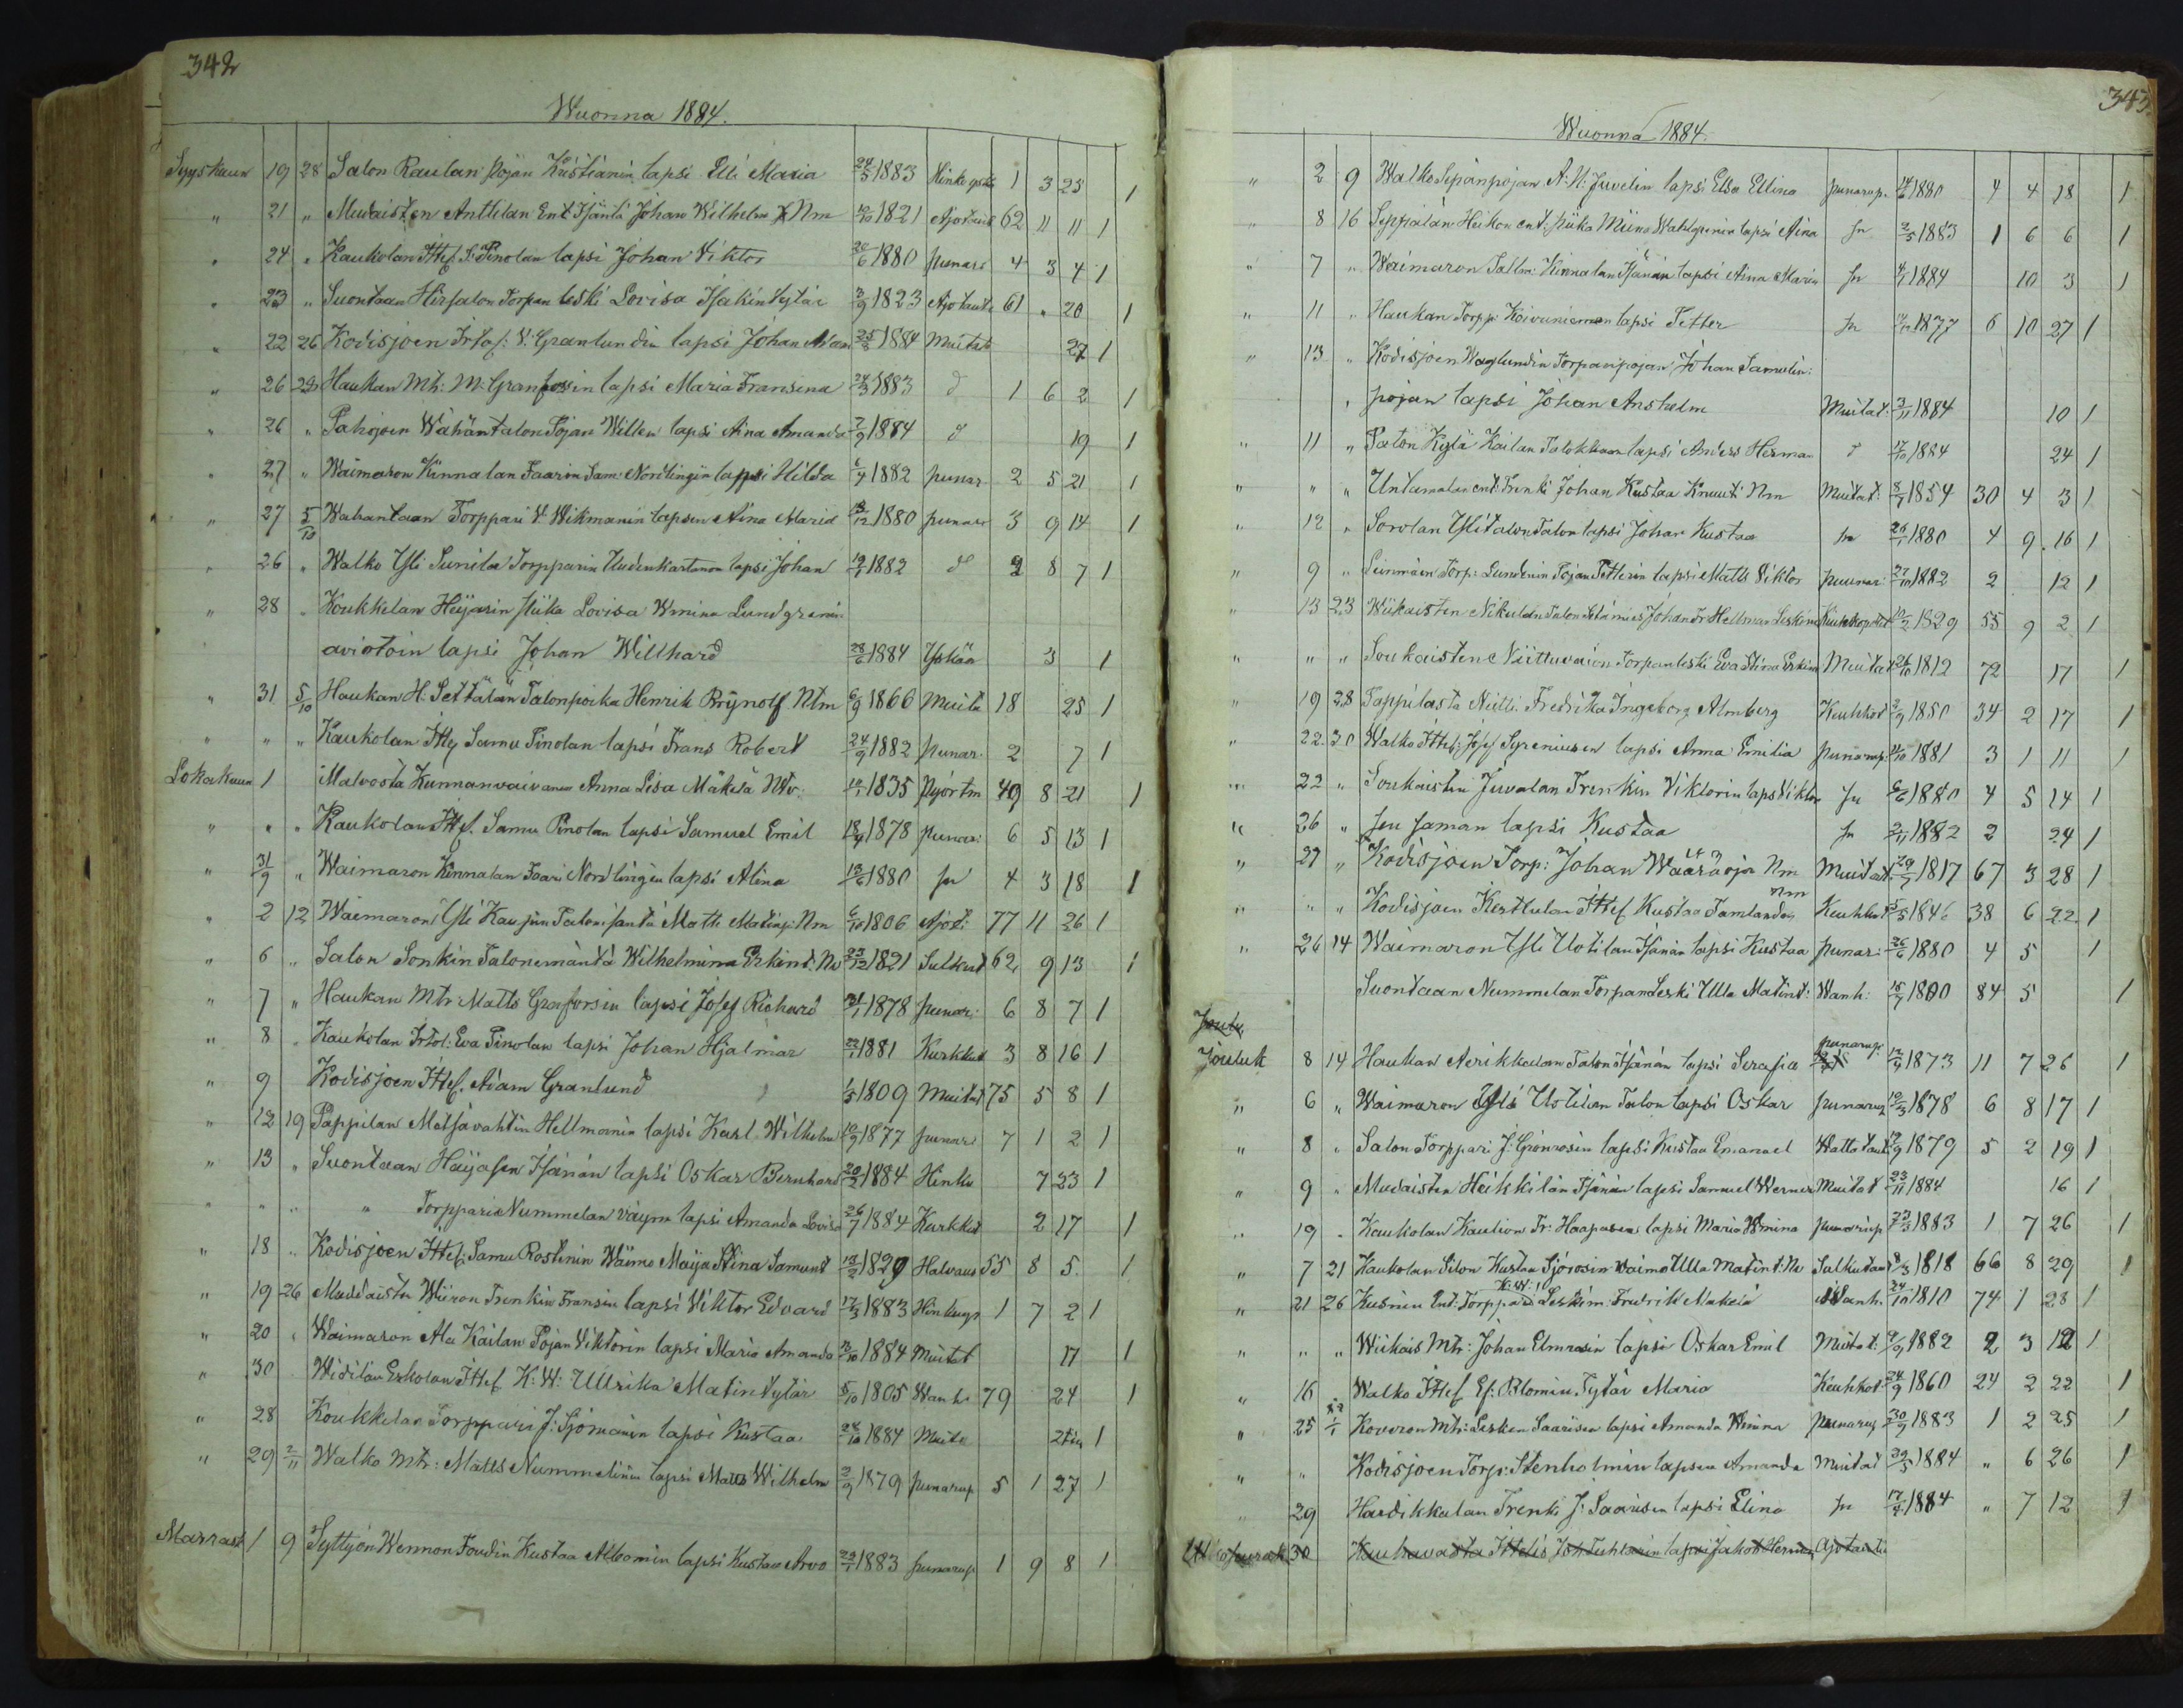 342
Wuonna 1884.
Syyskuun 19 28 Salon Raulan Pojan Kristianin lapsi Elli Maria 24/5 1883 Hinku 1 3 25 1
" 21 " Mudaisten Anttilan Ent Isäntä Johan Wilhelm Nm 10/10 1821 Ajotaut 62 11 11 1
" 24 " Kaukolan Ittel. S. Pinolan lapsi Johan Viktor 20/6 1880 punar 4 3 4 1
" 23 " Suontaan Hirsalon Torpan leski Lovisa Isakintytär 3/9 1823 Ajotauti 61 " 20 1
" 22 26 Kodisjoen V. Granlundin lapsi Johan 25/8 1884 Muitat 27 1
" 26 28 Haukan Mtr: M: Granforsin lapsi Maria Fransena 24/3 1883 d 1 6 2 1
" 26 " Pahojoen Wähäntalon Pojan Willen lapsi Aina Amanda 7/9 1884 d 19 1
" 27 " Waimaron Kinnalan Faarin Sam: Nordlingin lapsi Hilda 6/4 1882 punar 2 5 21 1
" 27 5/10 Wahantaan Torppari V. Wikmanin lapsen Aina Maria 13/12 1880 punar 3 9 14 1
" 26 " Walko Yli Sunila Torpparin Uudenkartanon lapsi Johan 19/1 1882 d 2 8 7 1
" 28 " Koukkelan Heijarin piika Lovisa Wmina Lundgrenin
aviotoin lapsi Johan Willhard 28/6 1884 Yskää 3 1
" 31 5/10 Haukan H. Settälän Talonpoika Henrik Brynolf Ntm 6/9 1866 Muita 18 25 1
" " " Kaukolan Ittel Samu Pinolan lapsi Frans Robert 24/9 1882 punar. 2 7 1
Lokakuun 1 Matvosta Kunnanvaivanen Anna Lisa Mäkelä Ntv. 10/1 1835 Pyörtm 49 8 21 1
" " " Kaukolan Ittel. Samu Pinolan lapsi Samuel Emil 18/4 1878 punar 6 5 13 1
" 31/9 " Waimaron Kinnalan Faari Nordlingin lapsi Alina 13/6 1880 sn 4 3 18 1
" 2 12 Waimaron Yli Kaujun Talon isäntä Matti Matinp. Nm 6/10 1806 Ajost. 77 11 26 1
" 6 " Salon Sonkin Talonemäntä Wilhelmina Erkint. Nv 23/12 1821 62 9 13 1
" 7 " Haukan Mtr: Matts Granforsin lapsi Josef Richard 31/1 1878 punar: 6 8 7 1
" 8 " Kaukolan Eva Pinolan lapsi Johan Hjalmar 22/1 1881 Kurkkut 3 8 16 1
" 9 Kodisjoen Ittel. Adam Granlund 1/5 1809 Muitat 75 5 8 1
" 12 19 Pappilan Metsävahtin Hellmanin lapsi Karl Wilhelm 10/9 1877 punar 7 1 2 1
" 13 " Suontaan Haijasen Isänän lapsi Oskar Bernhard 20/2 1884 Hinku 7 23 1
" " " " Torpparin Nummelan vaijm lapsi Amanda Lovisa 26/7 1884 Kurkkut 2 17 1
" 18 " Kodisjoen Ittel: Samu Rostenin Waimo Maija Stina Samunt 13/2 1829 Halvaus 55 8 5 1
" 19 26 Mudaisten Wieron Trenkin Fransin lapsi Viktor Edvard 17/3 1883 Hinku 1 7 2 1
" 20 " Waimaron Ala Kailan Pojan Viktorin lapsi Maria Amanda 3/10 1884 Muitat 17 1
" 30 Widilan Erkolan Ittel K: W: Ullrika Matintytär 5/10 1805 Wanh. 79 24 1
" 28 Koukkelan Torppari J: Sjömanin lapsi Kustaa 28/10 1884 Muita 2tiu 1
" 29 2/11 Walko Mtr: Matts Nummelinin lapsi Matts Wilhelm 2/9 1879 punarup 5 1 27 1
Marrask 1 9 Syttyön Wennon Foudin Kustaa Alloomin lapsi Kustaa Arvo 23/1 1883 punarup 1 9 8 1
343.
Wuonna 1884.
" 2 9 Walko Sepänpojan A: N: Juvelin lapsi Elsa Elina punarup. 14/6 1880 4 4 18 1
" 8 16 Seppälän Heikon ent: piika Miina Wahlgrenin lapsi Aina sn 2/5 1883 1 6 6 1
" 7 " Waimaron Kinnalan Isänän lapsi Aina Maria sn 4/1 1884 10 3 1
" 11 " Haukan Torpp: Koivuniemen lapsi Petter sn 14/12 1877 6 10 27 1
" 13 " Kodisjoen Waglundin Torpanpojan Johan Samulin:
" pojan lapsi Johan Anshelm Muitat. 3/11 1884 10 1
" 11 " Paton Kylä Kailan Talokkaan lapsi Anders Herman d 17/10 1884 24 1
" " " Untamalan ent: Trenki Johan Kustaa Knuut: Nm Muitat: 8/7 1854 30 4 3 1
" 12 " Sorolan Ylitalon Talon lapsi Johan Kustaa sn 26/1 1880 4 9 16 1
" 9 " Leinmäen Torp: Lundenin Pojan Petterin lapsi Matts Viktor punar: 27/10 1882 2 12 1
" 13 23 Wiikaisten Nikulan Talon Isäntämies Johan Fr Hellman Leskim Keuhkopolt 10/2 1829 55 9 2 1
" " " Soukaisten Niittuvaion Torpan leski Eva Stina Erkint Muitat 26/10 1812 72 17 1
" 19 28 Pappilasta Neitti. Fredrika Ingeborg Almberg Keuhkot 2/9 1850 34 2 17 1
" 22 30 Walko Ittel: Josef Syreniusen lapsi Anna Emilia punarup. 11/10 1881 3 1 11 1
" 22 " Soukaisten Juvalan Trenkin Viktorin laps Viktor sn 6/6 1880 4 5 14 1
" 26 " sen saman lapsi Kustaa sn 2/11 1882 2 24 1
" 27 " Kodisjoen Torp: Johan Waaraoja Nm Muitat. 29/7 1817 67 3 28 1
" " " Kodisjoen Kesttulan Ittel Kustaa Tamlander Nm Keuhkot 5/5 1846 38 6 22 1
" 26 14 Waimaron Yli Uotilan Isänän lapsi Kustaa punar: 26/6 1880 4 5 1
Suontaan Nummelan Torpan Leski Ulla Matint: Wanh: 15/7 1800 84 5 1
Joulu
Jouluk 8 14 Haukan Aerikkalan Talon Isänän lapsi Serafia punarup: 12/4 1873 11 7 26 1
" 6 " Waimaron Yli Uotilan Talon lapsi Oskar punarup 19/3 1878 6 8 17 1
" 8 " Salon Torppari J: Grönrosin lapsi Kustaa Emanuel Wattataut 19/9 1879 5 2 19 1
" 9 " Mudaisten Heikkilän Isänän lapsi Samuel Werner Muitat 23/11 1884 16 1
" 19 " Kaukolan Kaulion Tr: Haapasen lapsi Maria Wmina punarup 23/3 1883 1 7 26 1
" 7 21 Kaukolan Silon Kustaa Sjörosin waimo Ulla Matint: Nv 8/3 1818 66 8 29 1
" 21 26 Kusnin Ent: Torppari K: W: Leskim: Fredrik Mäkelä Wanh. 24/10 1810 74 1 28 1
" " " Wiikais Mtr: Johan Elmrosin lapsi Oskar Emil Muitat: 9/9 1882 2 3 12 1
" 16 " Walko Ittel Ef: Blomin Tytär Maria Keuhkot 24/9 1860 24 2 22 1
" 25 1/1 Koveron Mtr: Lesken Saarisen lapsi Amanda Wmina punarup 30/9 1883 1 2 25 1
" " Kodisjoen Torp: Stenholmin lapsen Amanda Muitat 29/5 1884 " 6 26 1
" 29 Haudikkalan Trenki J: Saarisen lapsi Elina sn 17/5 1884 " 7 12 1
30 Kauhavasta Ittelis Joh Tuhlarin lapsi Jakob Herman Ajotauti